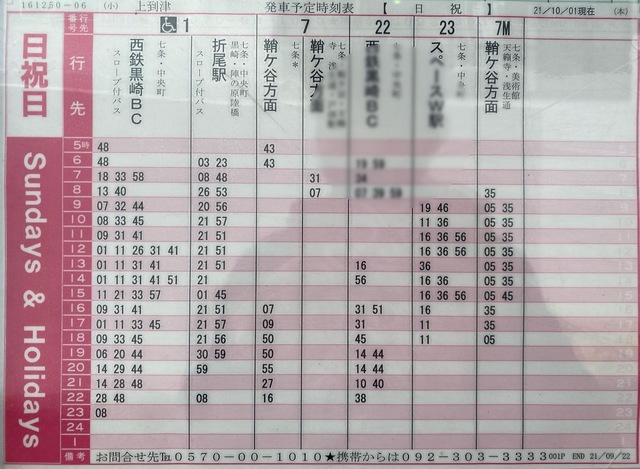 161250-06 (小) 上到津 発車予定時刻表 【 日 祝 】 21/10/01現在 (木)
行先番号 1 7 22 23 7M
日祝日
Sundays & Holidays
行先
西鉄黒崎BC 七条・中央町 スロープ付バス
折尾駅 七条・中央町 黒崎・陣の原陸橋 スロープ付バス
鞘ケ谷方面 七条*
鞘ケ谷方面 七条
西鉄黒崎BC 七条・中央町
スペースW駅 七条・中央町
鞘ケ谷方面 七条・美術館 天籟寺・浅生通
5時 48 43
6 48 03 23 43 19 59
7 18 33 58 08 48 31 34
8 13 40 26 53 07 07 39 59 35
9 07 32 44 20 56 19 46 05 35
10 08 33 45 21 57 11 36 05 35
11 09 31 41 21 51 16 36 56 05 35
12 01 11 26 31 41 21 51 16 36 56 05 35
13 01 11 31 41 21 51 16 36 05 35
14 01 11 31 41 51 21 56 16 36 05 35
15 11 21 33 57 01 45 16 36 56 05 45
16 09 31 41 21 51 07 31 51 16 35
17 01 11 33 45 21 57 09 31 11 35
18 09 33 45 21 56 50 45 11 05
19 06 20 44 30 59 50 14 44
20 14 29 44 59 55 14 44
21 14 28 48 27 10 40
22 28 48 08 16 38
23 08
24
1
備考 お問合せ先℡0570-00-1010★携帯からは092-303-3333 001P END 21/09/22